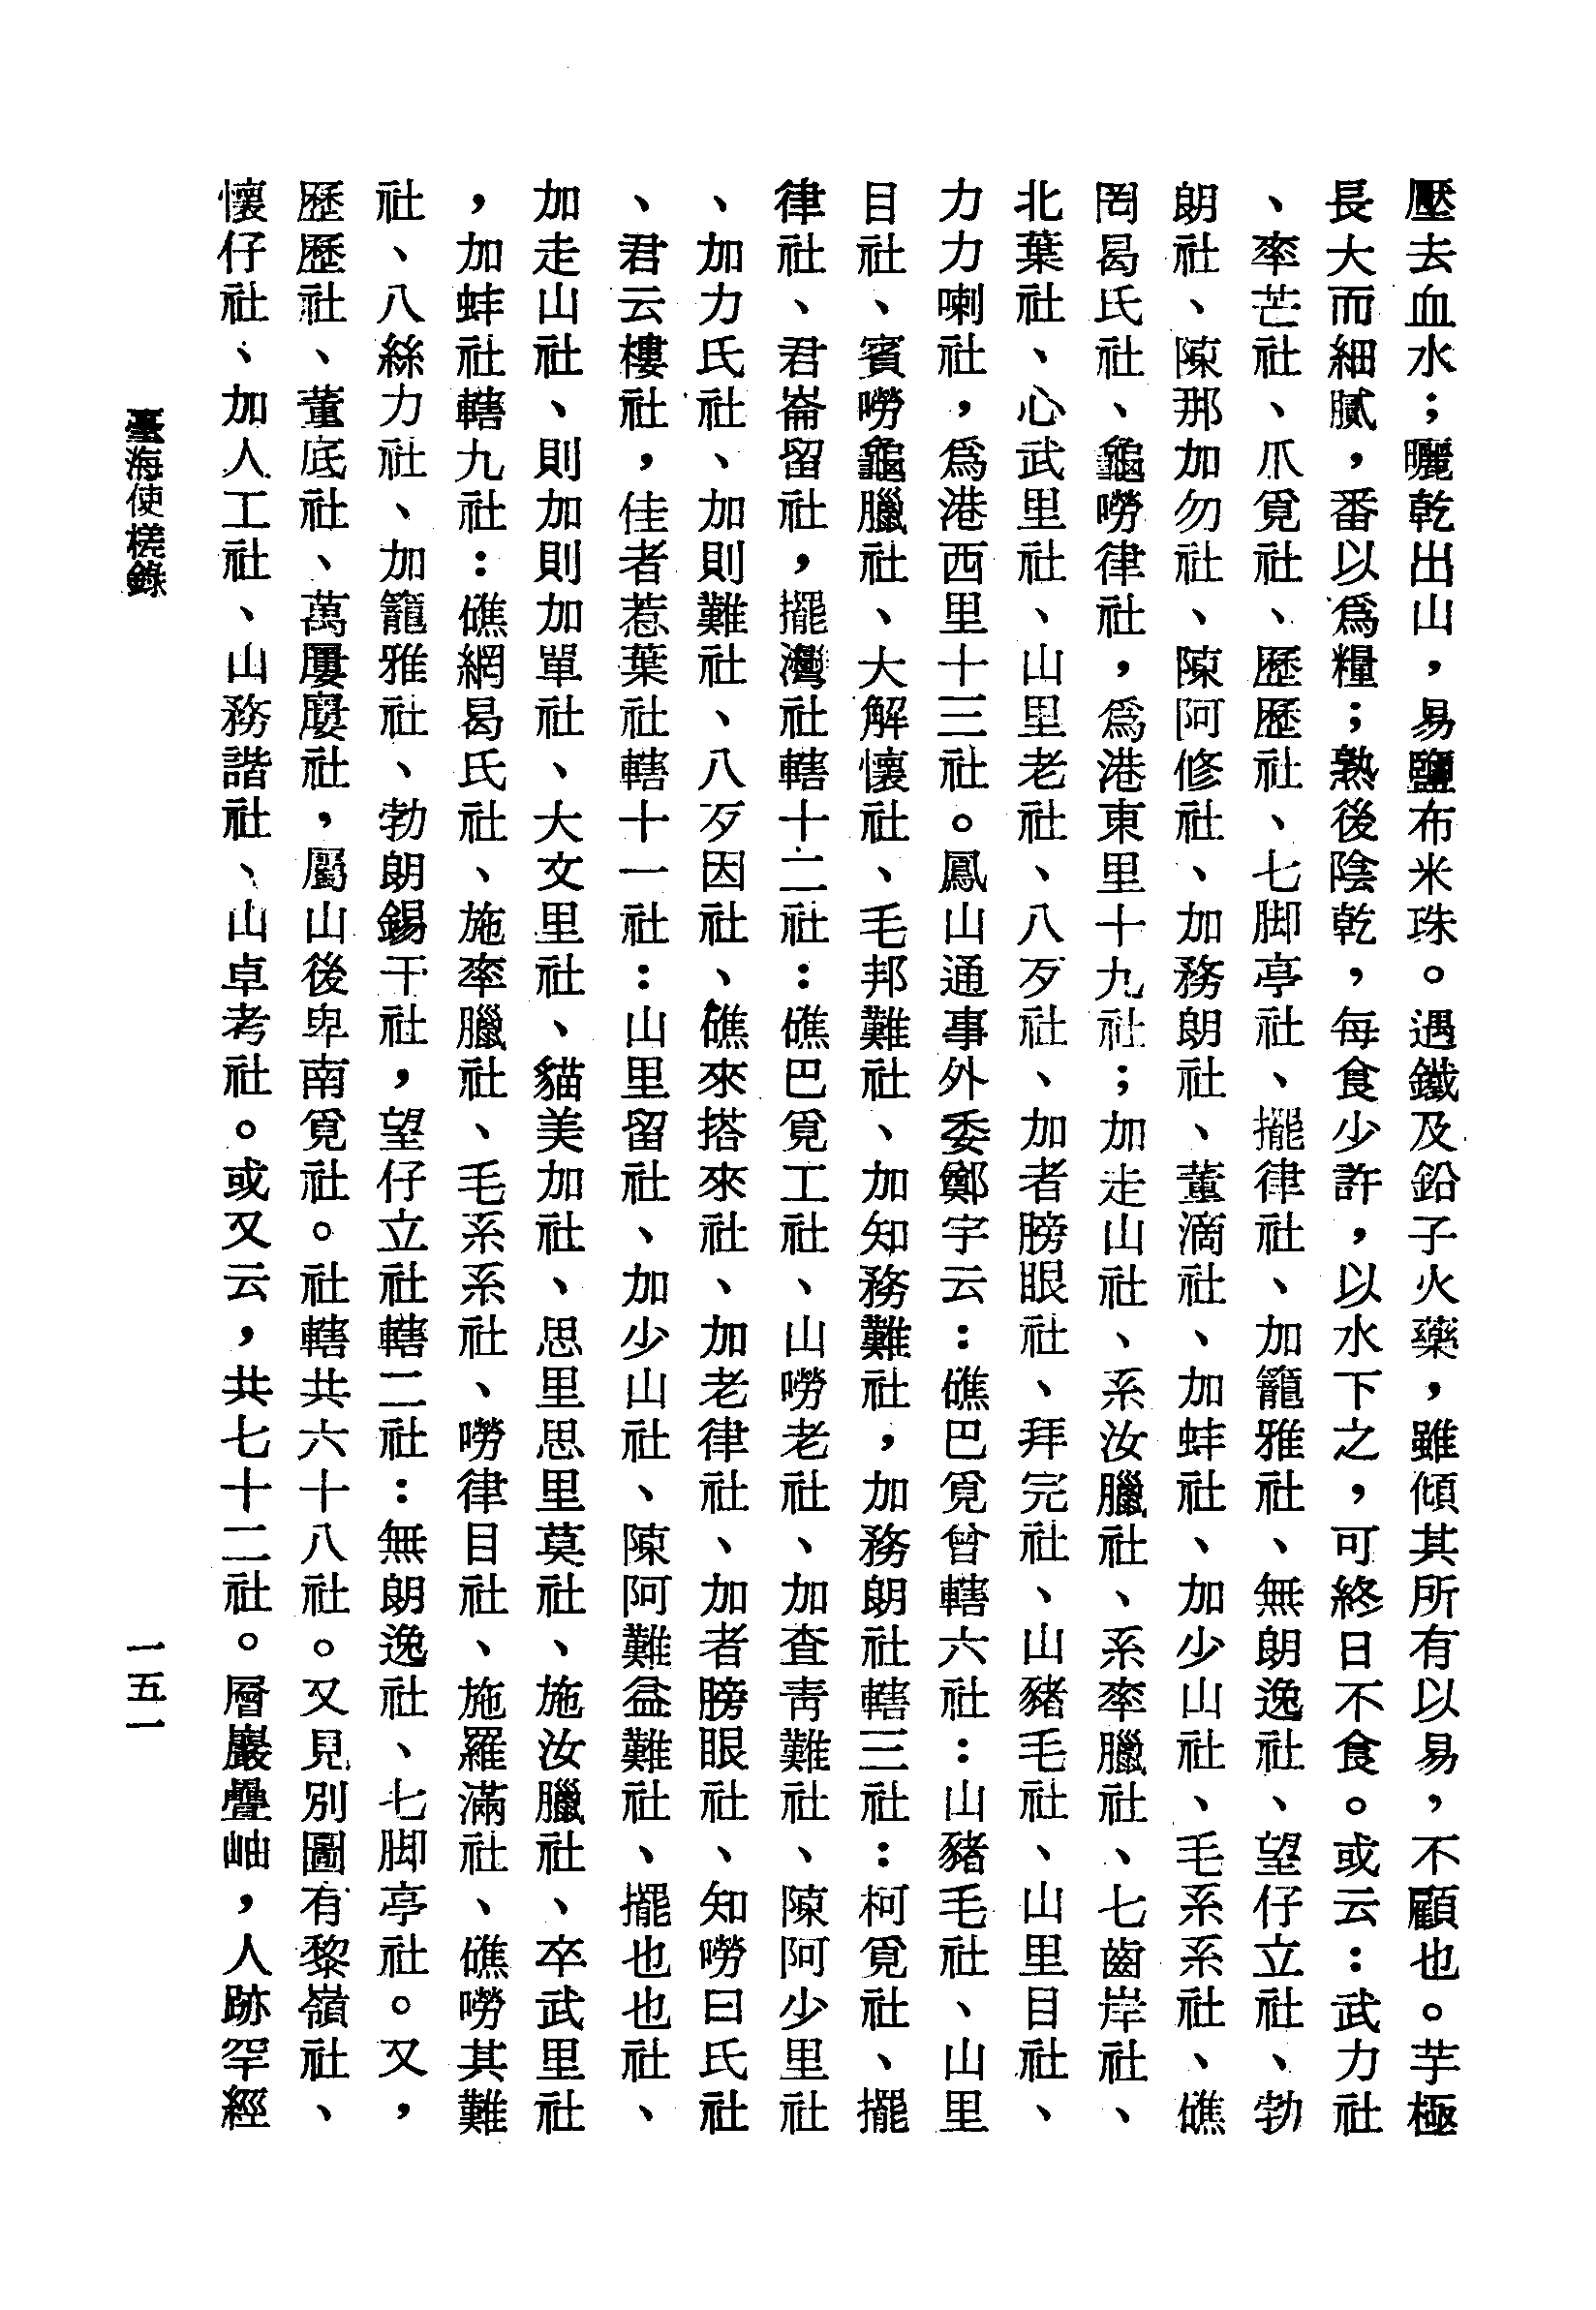 壓去血水；曬乾出山，易鹽布米珠。遇鐵及鉛子火藥，雖傾其所有以易，不顧也。芋極
長大而細膩，番以爲糧；熟後陰乾，每食少許，以水下之，可終日不食。或云：武力社
、率芒社、爪覓社、歷歷社、七脚亭社、擺律社、加籠雅社、無朗逸社、望仔立社、勃
朗社、陳那加勿社、陳阿修社、加務朗社、董滴社、加蚌社、加少山社、毛系系社、礁
罔曷氏社、龜嘮律社，爲港東里十九社；加走山社、系汝臘社、系率臘社、七齒岸社、
北葉社、心武里社、山里老社、八歹社、加者膀眼社、拜完社、山豬毛社、山里目社、
力力喇社，爲港西里十三社。鳳山通事外委鄭宇云：礁巴覓曾轄六社：山豬毛社、山里
目社、賓嘮龜臘社、大解懷社、毛邦難社、加知務難社，加務朗社轄三社：柯覓社、擺
律社、君崙留社，擺灣社轄十二社：礁巴覓工社、山嘮老社、加査靑難社、陳阿少里社
、加力氏社、加則難社、八歹因社、礁來搭來社、加老律社、加者膀眼社、知嘮曰氏社
、君云樓社，佳者惹葉社轄十一社：山里留社、加少山社、陳阿難益難社、擺也也社、
加走山社、則加則加單社、大文里社、貓美加社、思里思里莫社、施汝臘社、卒武里社
，加蚌社轄九社：礁網曷氏社、施率臘社、毛系系社、嘮律目社、施羅滿社、礁嘮其難
社、八絲力社、加籠雅社、勃朗錫干社，望仔立社轄二社：無朗逸社、七脚亭社。又，
歷歷社、董底社、萬屢屢社，屬山後卑南覓社。社轄共六十八社。又見別圖有黎嶺社、
懷仔社、加人工社、山務諧社、山卓考社。或又云，共七十二社。層巖疊岫，人跡罕經
臺海使槎錄
一五一